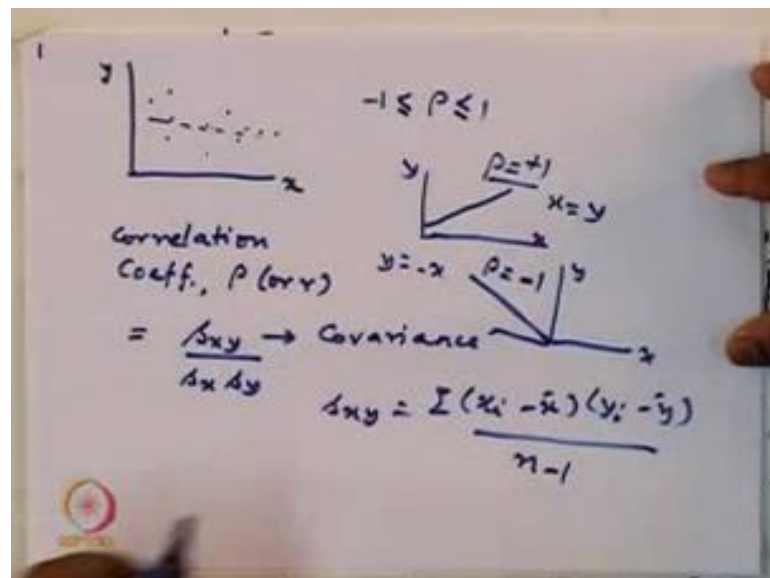 1
y
x
-1 ≤ ρ ≤ 1
y
ρ=+1
x=y
x
Correlation
Coeff., ρ (or r)
y=-x
ρ=-1
y
x
= sxy / sx sy → Covariance
sxy = Σ (xi - x̄)(yi - ȳ) / n-1